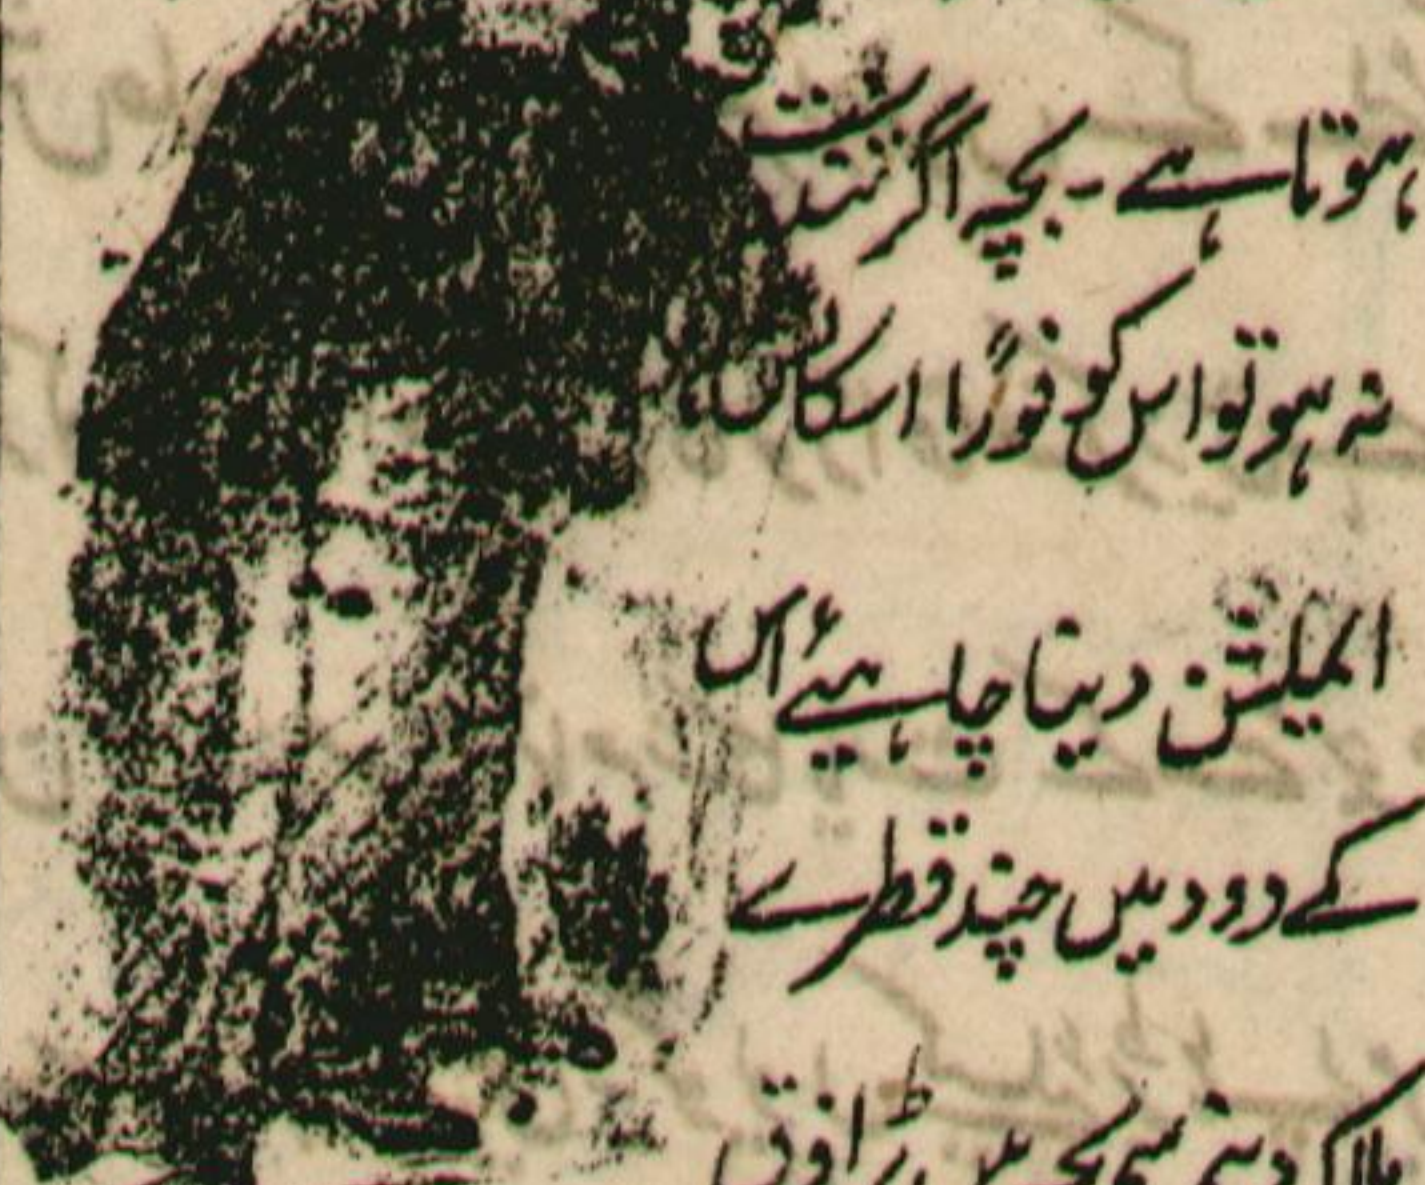 ہوتا ہے۔ بچہ اگر تندرست
نہ ہو تو اس کو فوراً اسکاٹس
ایملشن دینا چاہیئے اُس
کے دود میں چند قطرے
ملا کر دینے سے بچہ میں بڑا فرق